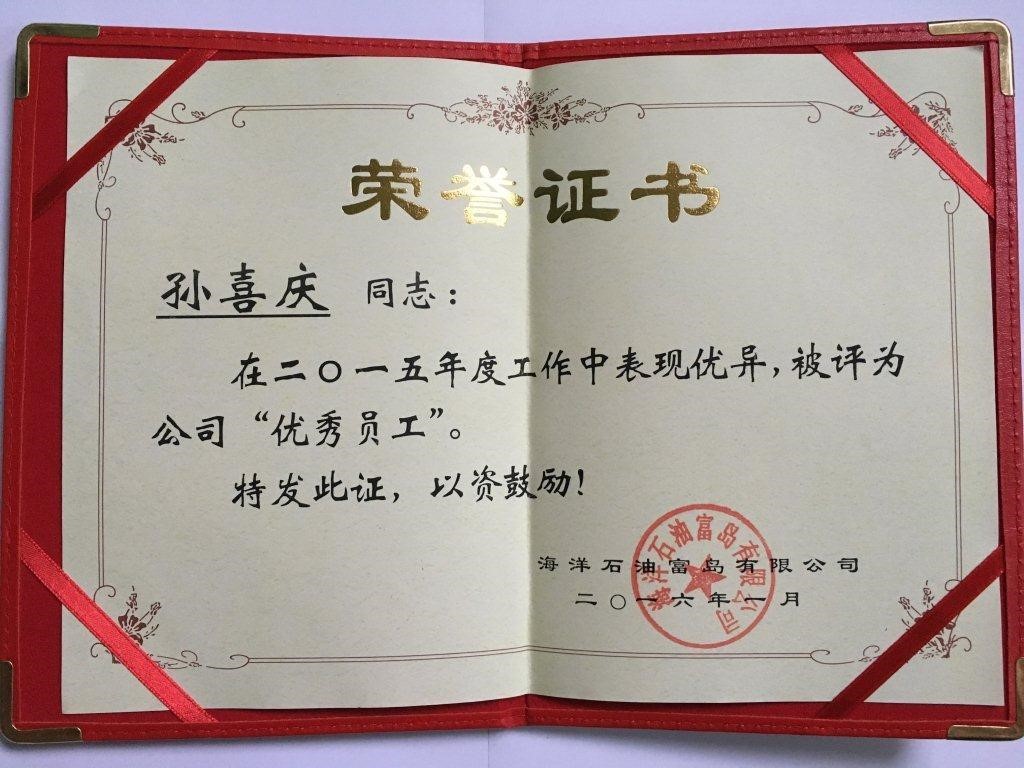 荣誉证书
孙喜庆 同志：
在二〇一五年度工作中表现优异，被评为
公司“优秀员工”。
特发此证，以资鼓励！
海洋石油富岛有限公司
二〇一六年一月
海洋石油富岛有限公司